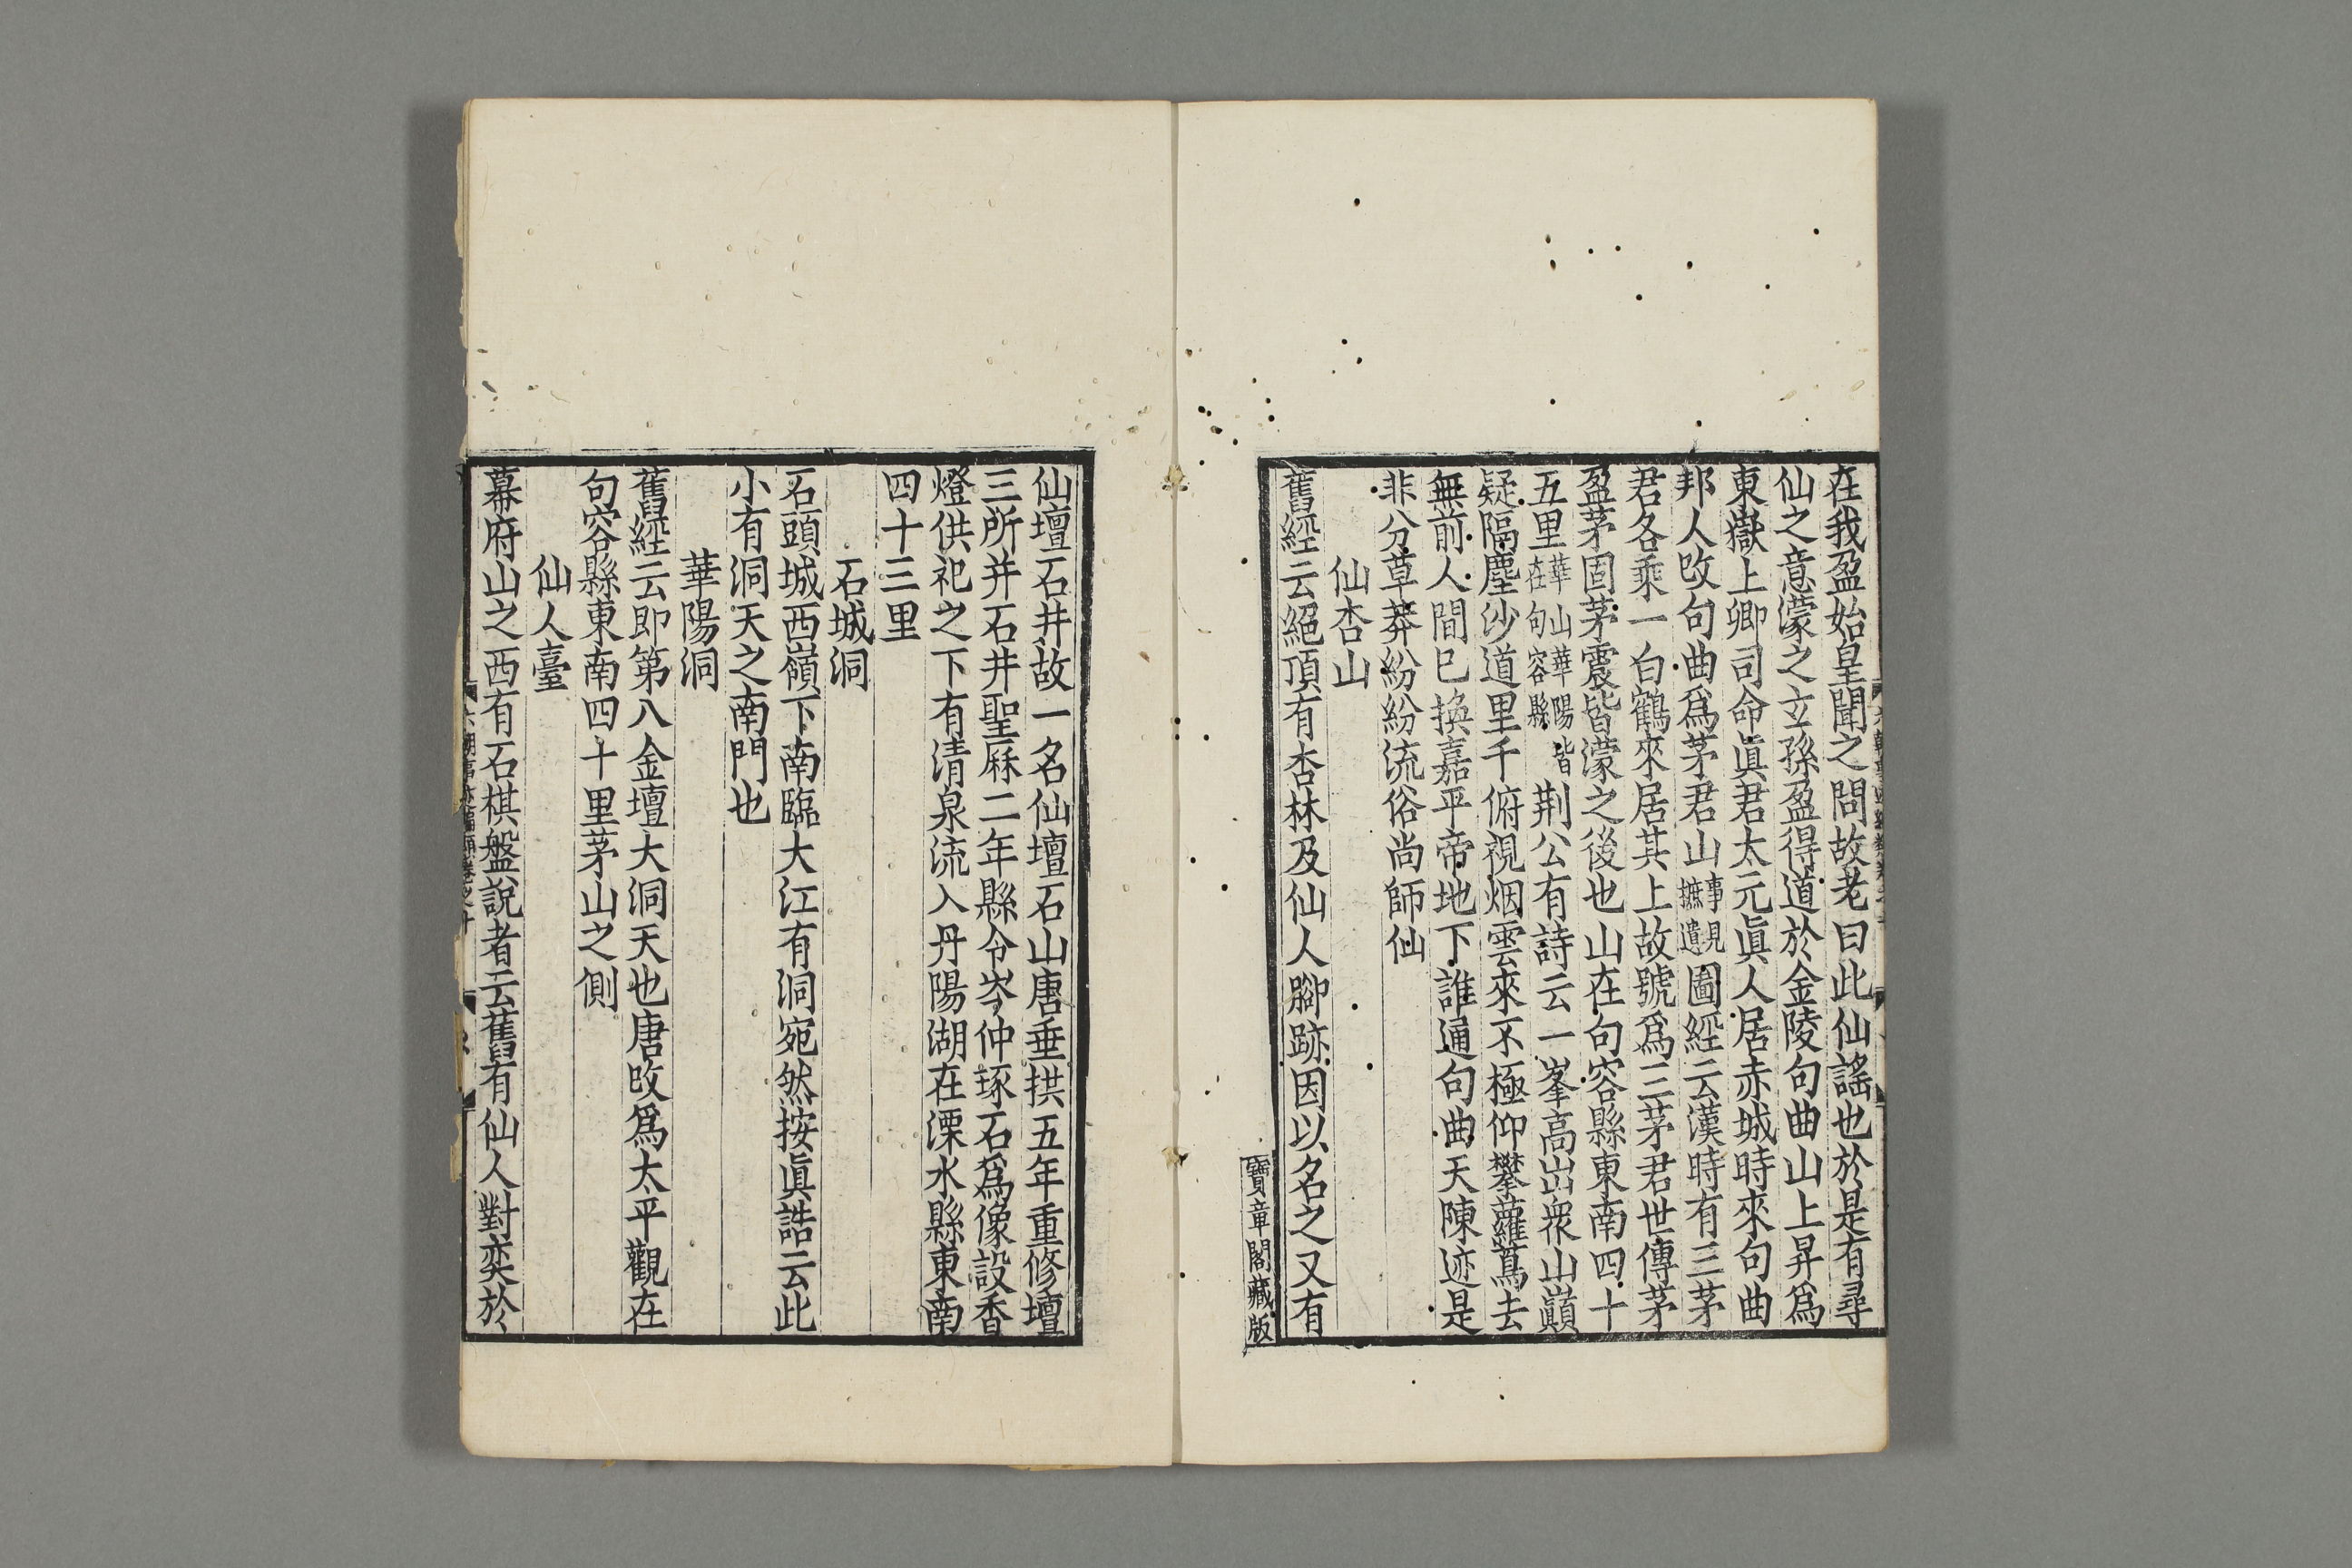 在我盈始皇聞之問故老曰此仙謠也於是有尋
仙之意濛之立孫盈得道於金陵句曲山上昇爲
東嶽上卿司命眞君太元眞人居赤城時來句曲
邦人改句曲爲茅君山事見摭遺圖經云漢時有三茅
君各乘一白鶴來居其上故號爲三茅君世傳茅
盈茅固茅震皆濛之後也山在句容縣東南四十
五里華山華陽皆在句容縣荆公有詩云一峯高出衆山巔
疑隔塵沙道里千俯視烟雲來不極仰攀蘿蔦去
無前人間已換嘉平帝地下誰通句曲天陳迹是
非分草莽紛紛流俗尚師仙
仙杏山
舊經云絕頂有杏林及仙人腳跡因以名之又有
寶章閣藏版
仙壇石井故一名仙壇石山唐垂拱五年重修壇
三所并石井聖厤二年縣令岑仲琢石爲像設香
燈供祀之下有清泉流入丹陽湖在溧水縣東南
四十三里
石城洞
石頭城西嶺下南臨大江有洞宛然按眞誥云此
小有洞天之南門也
華陽洞
舊經云即第八金壇大洞天也唐改爲太平觀在
句容縣東南四十里茅山之側
仙人臺
幕府山之西有石棋盤說者云舊有仙人對奕於